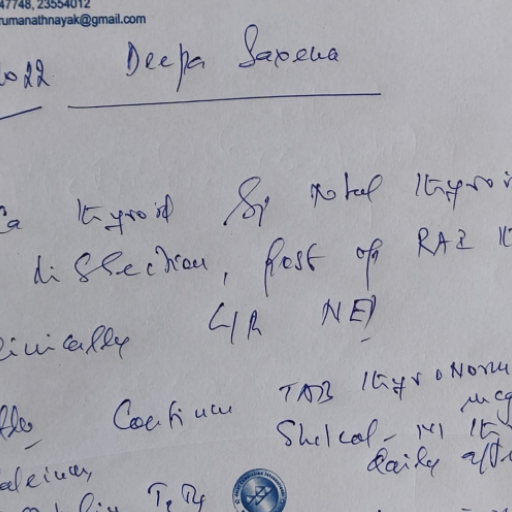 47748, 23554012
rumanathnayak@gmail.com
2022 Deepa Saxena
Ca thyroid S/p total thyroi
dissection, post op RAI
clinically L/R NED
Continue TAB Thyronorm
mcg
Shelcal - 1
daily
calcium,
T3 T4